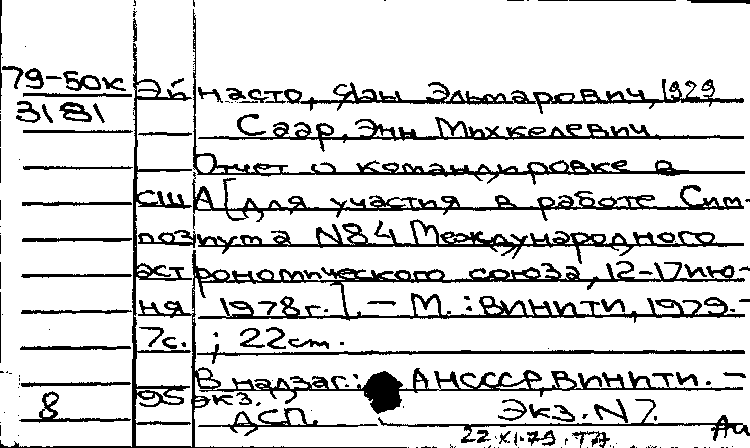 79-50к Эйнасто, Яан Эльмарович, 1929
3181 Саар, Энн Михкелевич
Отчет о командировке в
США [для участия в работе Сим-
позиума N84 Международного
астрономического союза, 12-17 ию-
ня 1978г.]. — М.: ВИНИТИ, 1979. -
7с. ; 22 см.
В надзаг.: АН СССР, ВИНИТИ. —
8 95 экз.
ДСП. Экз. N7.
22.XI.79. ТА